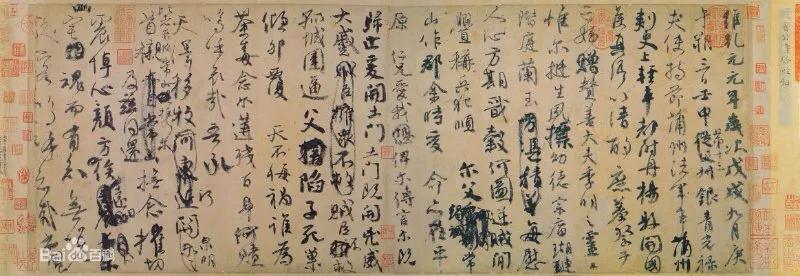 維乾元元年歲次戊戌九月庚
午朔三日壬申第十三叔銀青光祿
夫使持節蒲州諸軍事蒲州
刺史上輕車都尉丹楊縣開國
侯真卿以清酌庶羞祭于
亡姪贈贊善大夫季明之靈曰
惟爾挺生夙標幼德宗廟瑚璉
階庭蘭玉每慰
人心方期戩穀何圖逆賊間
釁稱兵犯順爾父竭誠常
山作郡余時受命亦在平
原仁兄愛我俾爾傳言爾既
歸止爰開土門土門既開凶威
大蹙賊臣不救
孤城圍逼父陷子死巢
傾卵覆天不悔禍誰為
荼毒念爾遘殘百身何贖
嗚呼哀哉吾承
天澤移牧河關泉明
比者再陷常山攜爾
首櫬及茲同還撫念摧切
震悼心顏方俟遠日
宅魂而有知無嗟
客嗚呼哀哉
Bai百科